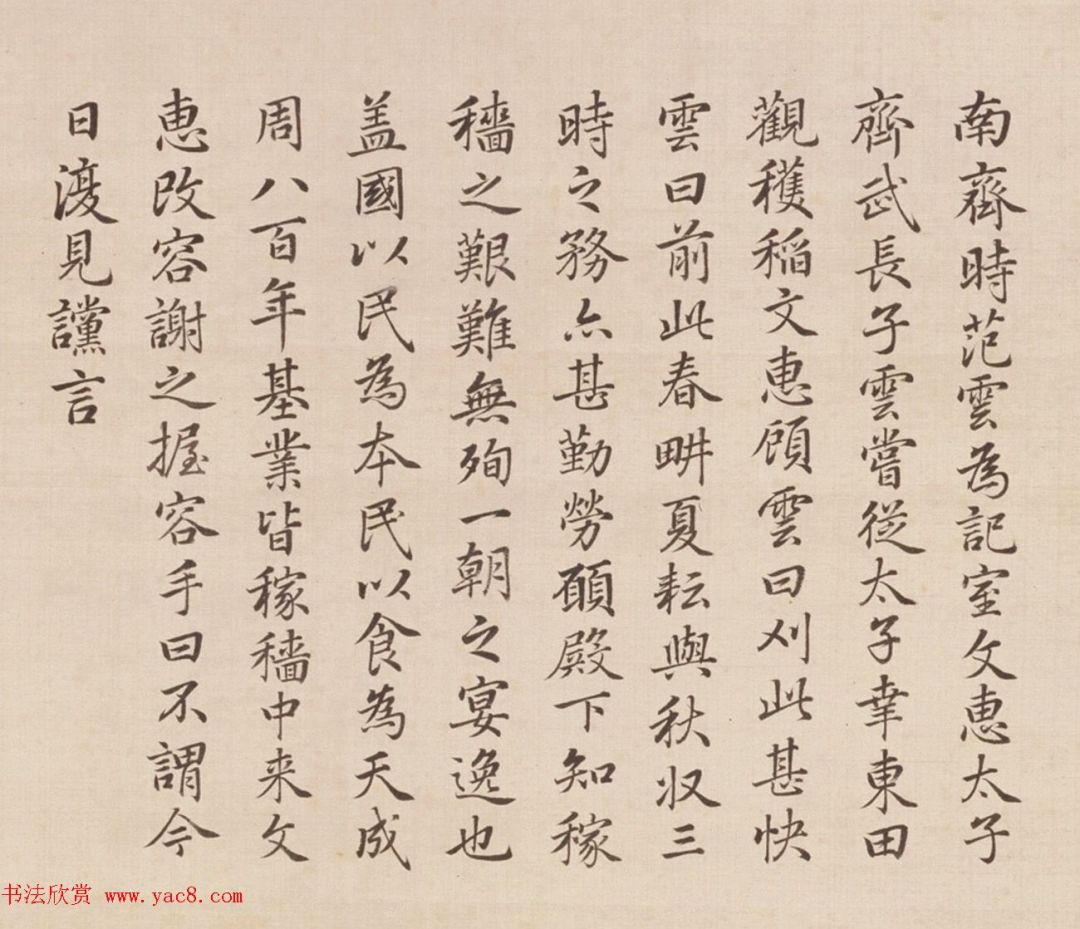 南齊時范雲為記室文惠太子
齊武長子雲嘗從太子幸東田
觀穫稲文惠顧雲曰刈此甚快
雲曰前此春畊夏耘與秋收三
時之務亦甚勤勞願殿下知稼
穡之艱難無殉一朝之宴逸也
盖國以民為本民以食為天成
周八百年基業皆稼穡中来文
惠改容謝之握容手曰不謂今
日復見讜言
书法欣赏 www.yac8.com